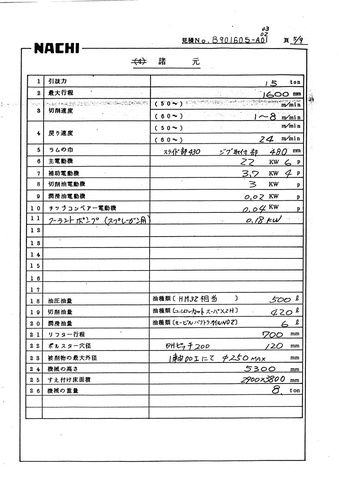 03
02
見積No. B901605-A01 頁 5/9
NACHI
諸 元
1 引抜力 15 ton
2 最大行程 1600 mm
3 切削速度 (50〜) m/min
(60〜) 1〜8 m/min
4 戻り速度 (50〜) m/min
(60〜) 24 m/min
5 ラムの巾 スライド部 430 ジブ取付部 480 mm
6 主電動機 22 KW 6 p
7 補助電動機 3.7 KW 4 p
8 切削油電動機 3 KW p
9 潤滑油電動機 0.02 KW p
10 チップコンベアー電動機 0.04 KW p
11 クーラントポンプ (スプレーガン用) 0.18 KW
12
13
14
15
16
17
18 油圧油量 油種類(HM32相当) 500 ℓ
19 切削油量 油種類( ) 420 ℓ
20 潤滑油量 油種類( ) 6 ℓ
21 リフター行程 700 mm
22 ボルスター穴径 取付ピッチ200 120 mm
23 被削物の最大外径 1軸加工にて φ250 MAX mm
24 機械の高さ 5300 mm
25 すえ付け床面積 2900×3800 mm
26 機械の重量 8 ton